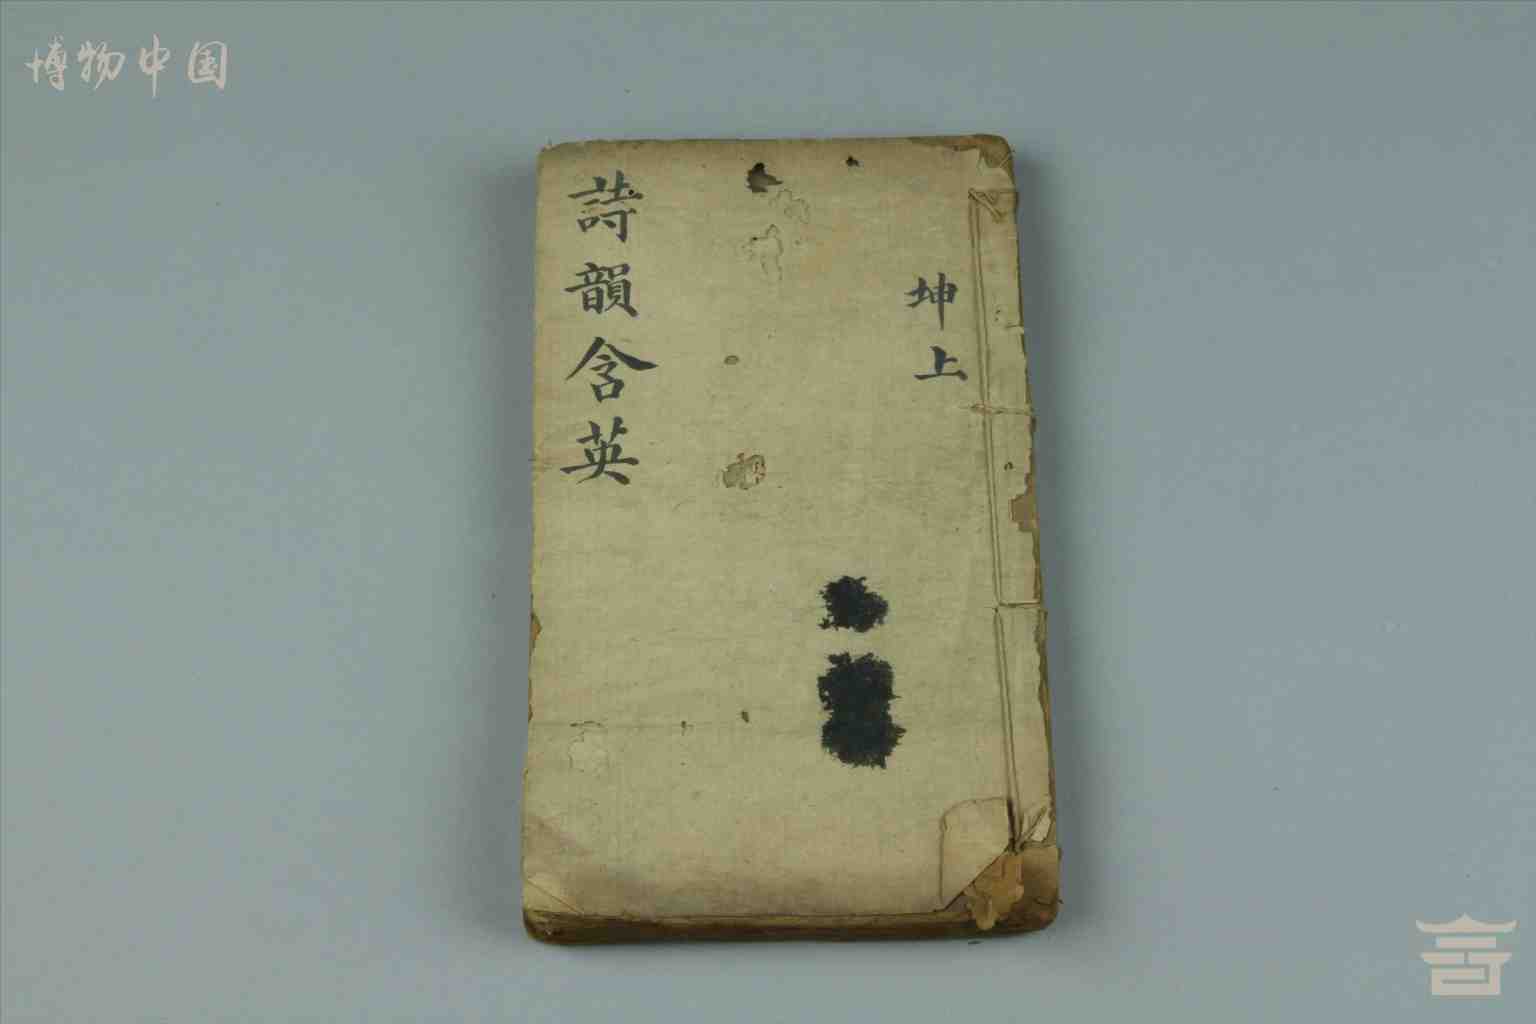 博物中国
坤上
詩韻含英